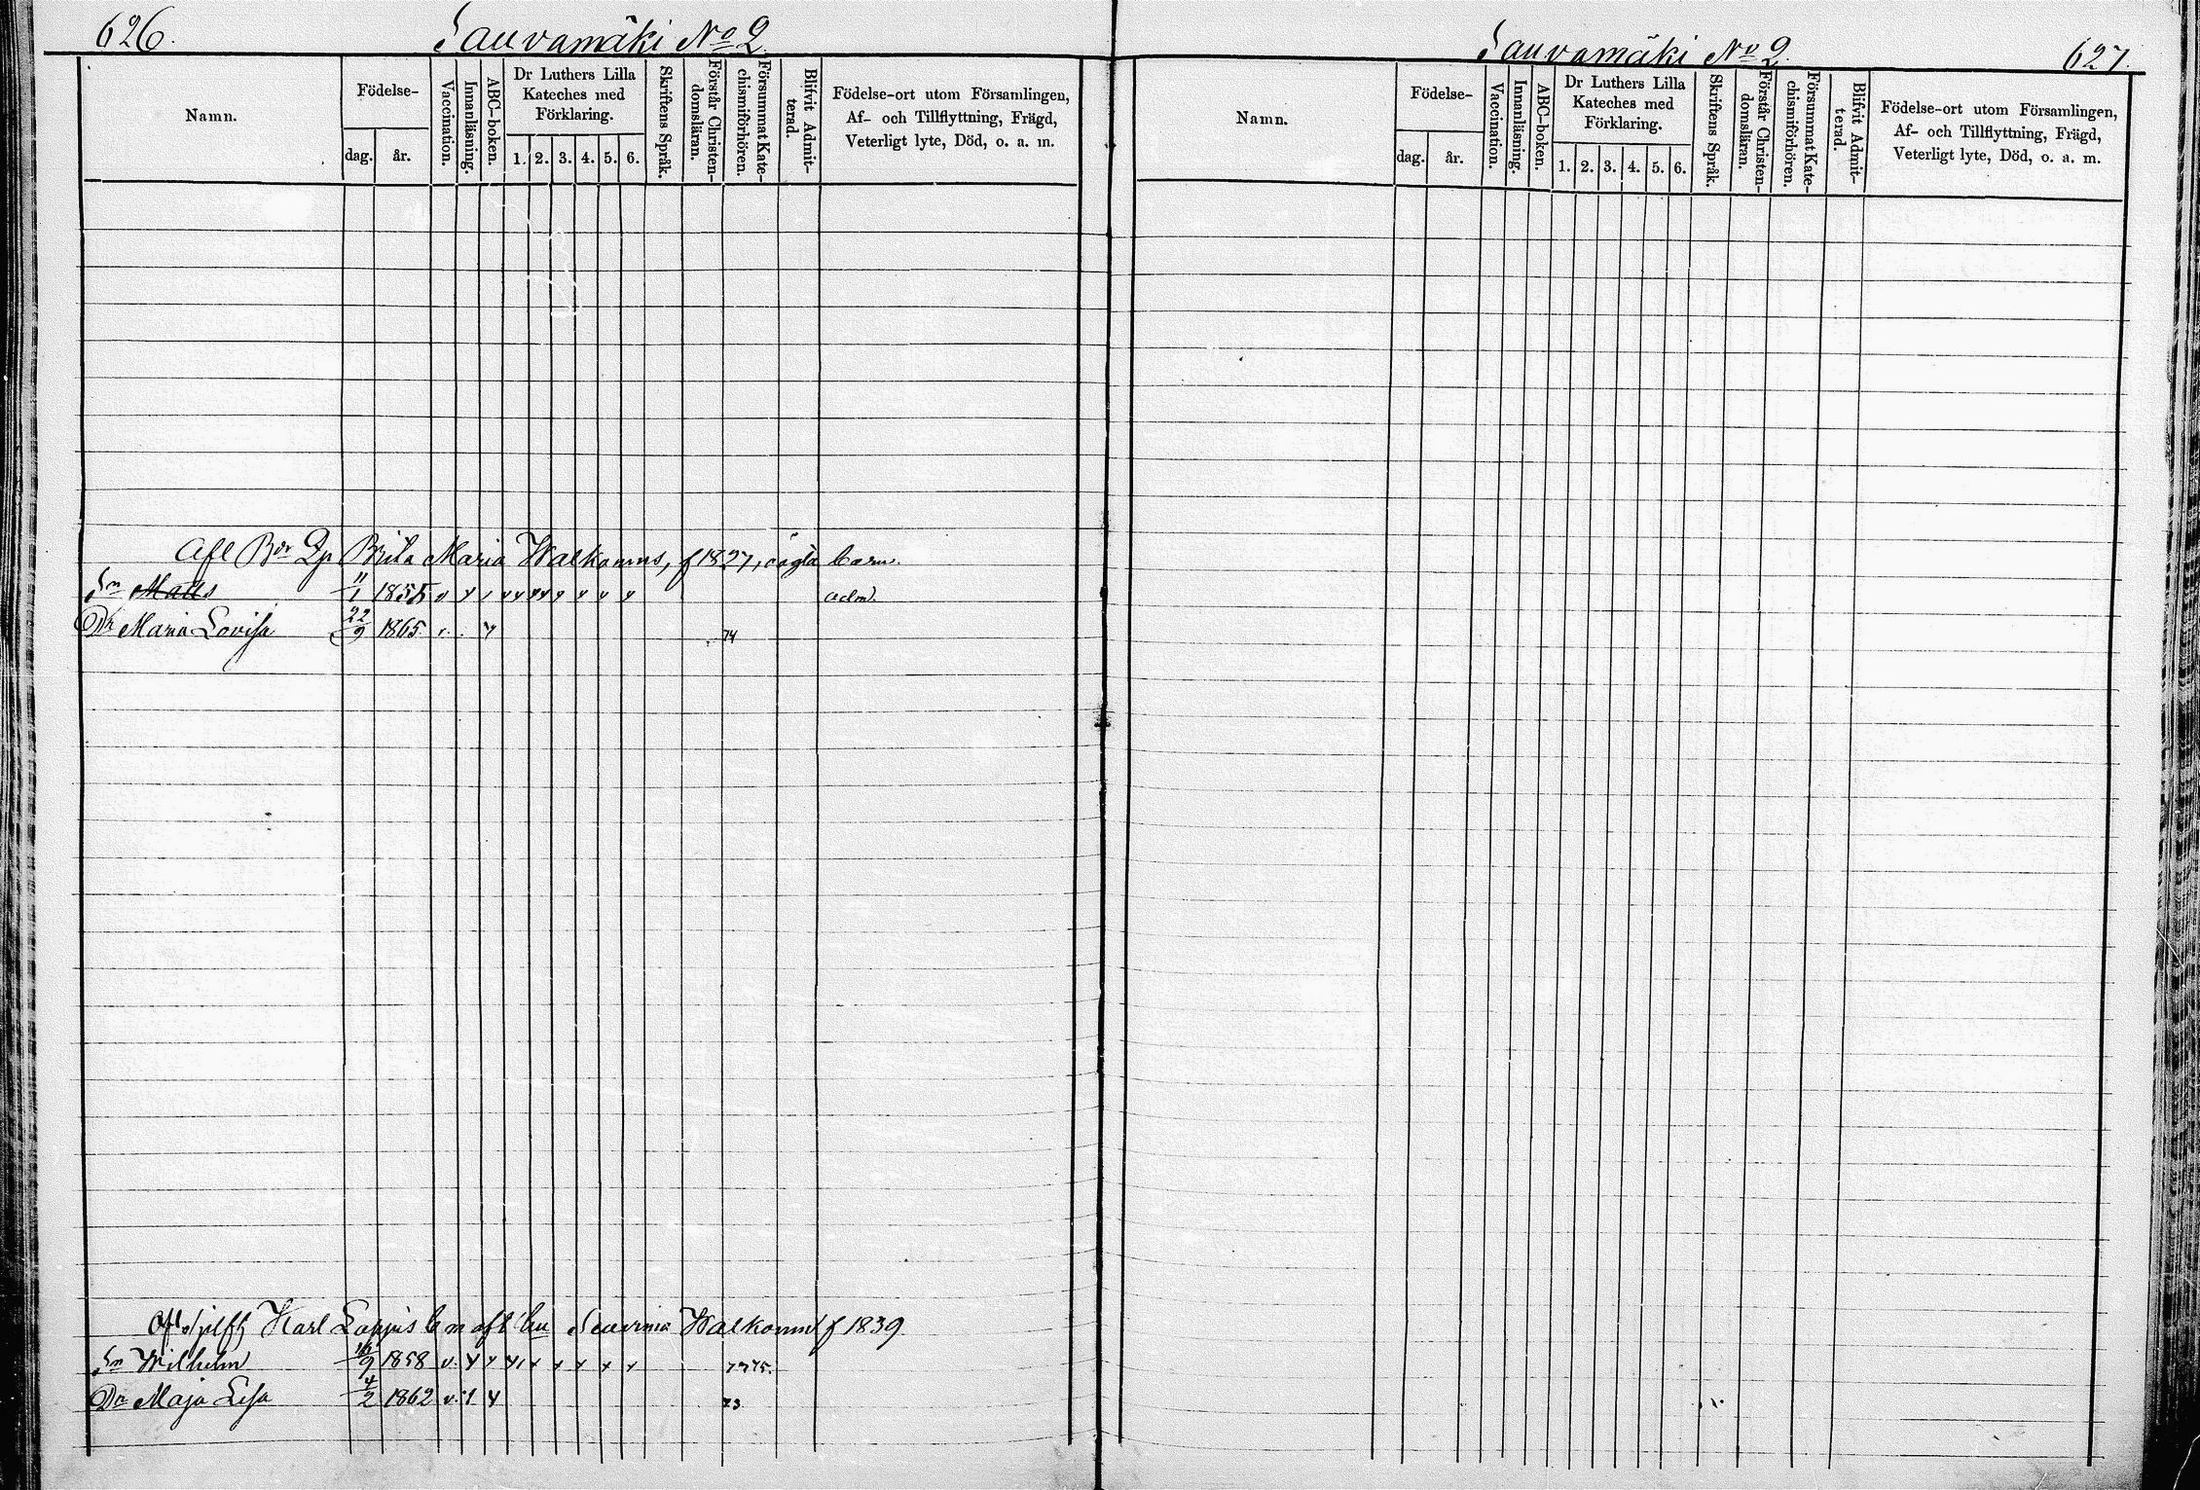 626. Sauvamäki No 2
Namn.
Födelse-
dag. år.
Vaccination.
Innanläsning.
ABC-boken.
Dr Luthers Lilla
Kateches med
Förklaring.
1. 2. 3. 4. 5. 6.
Skriftens Språk.
Förstår Christen-
domsläran.
Försummat Kate-
chismiförhören.
Blifvit Admit-
terad.
Födelse-ort utom Församlingen,
Af- och Tillflyttning, Frägd,
Veterligt lyte, Död, o. a. m.
Afl Brita Maria Walkomus, f 1827, oägta barn.
Sn Matts 11/1 1855 v adm.
Dr Maria Lovisa 22/9 1865 v. 74
Afl Karl Lappis Walkomus f 1839
Sn Wilhelm 1858 v.
Dr Maja Lisa 4/2 1862 v. 73
Sauvamäki No 2. 627.
Namn.
Födelse-
dag. år.
Vaccination.
Innanläsning.
ABC-boken.
Dr Luthers Lilla
Kateches med
Förklaring.
1. 2. 3. 4. 5. 6.
Skriftens Språk.
Förstår Christen-
domsläran.
Försummat Kate-
chismiförhören.
Blifvit Admit-
terad.
Födelse-ort utom Församlingen,
Af- och Tillflyttning, Frägd,
Veterligt lyte, Död, o. a. m.